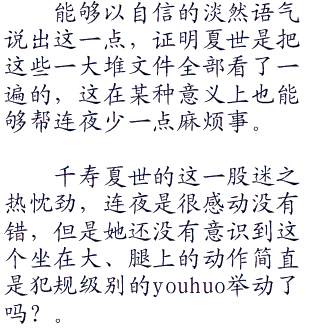 能够以自信的淡然语气
说出这一点，证明夏世是把
这些一大堆文件全部看了一
遍的，这在某种意义上也能
够帮连夜少一点麻烦事。
千寿夏世的这一股迷之
热忱劲，连夜是很感动没有
错，但是她还没有意识到这
个坐在大、腿上的动作简直
是犯规级别的youhuo举动了
吗？。